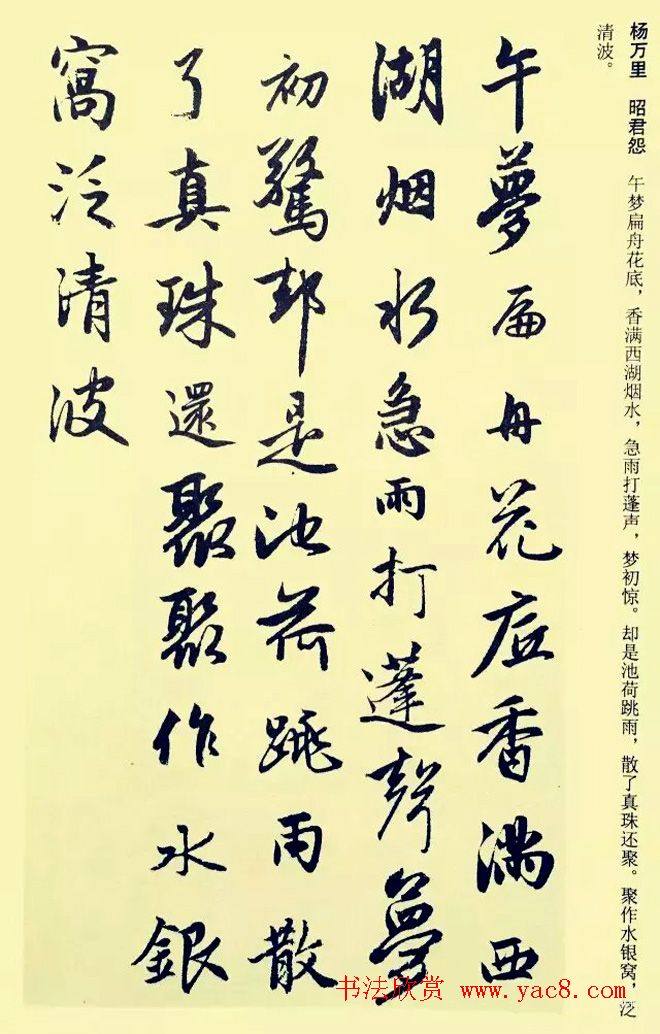 杨万里 昭君怨 午梦扁舟花底，香满西湖烟水，急雨打蓬声，梦初惊。却是池荷跳雨，散了真珠还聚。聚作水银窝，泛
清波。
午夢扁舟花底香滿西
湖烟水急雨打蓬聲夢
初驚却是池荷跳雨散
了真珠還聚聚作水銀
窩泛清波
书法欣赏 www.yac8.com